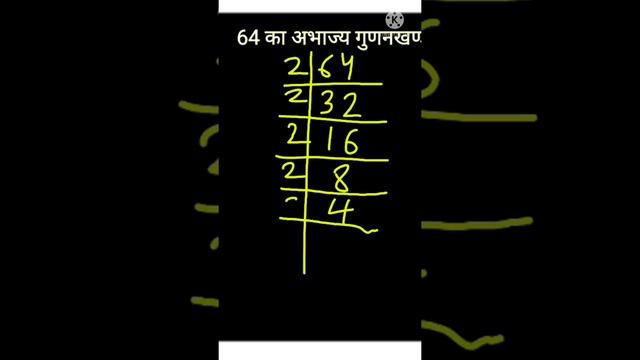 64 का अभाज्य गुणनखण
2 64
2 32
2 16
2 8
4